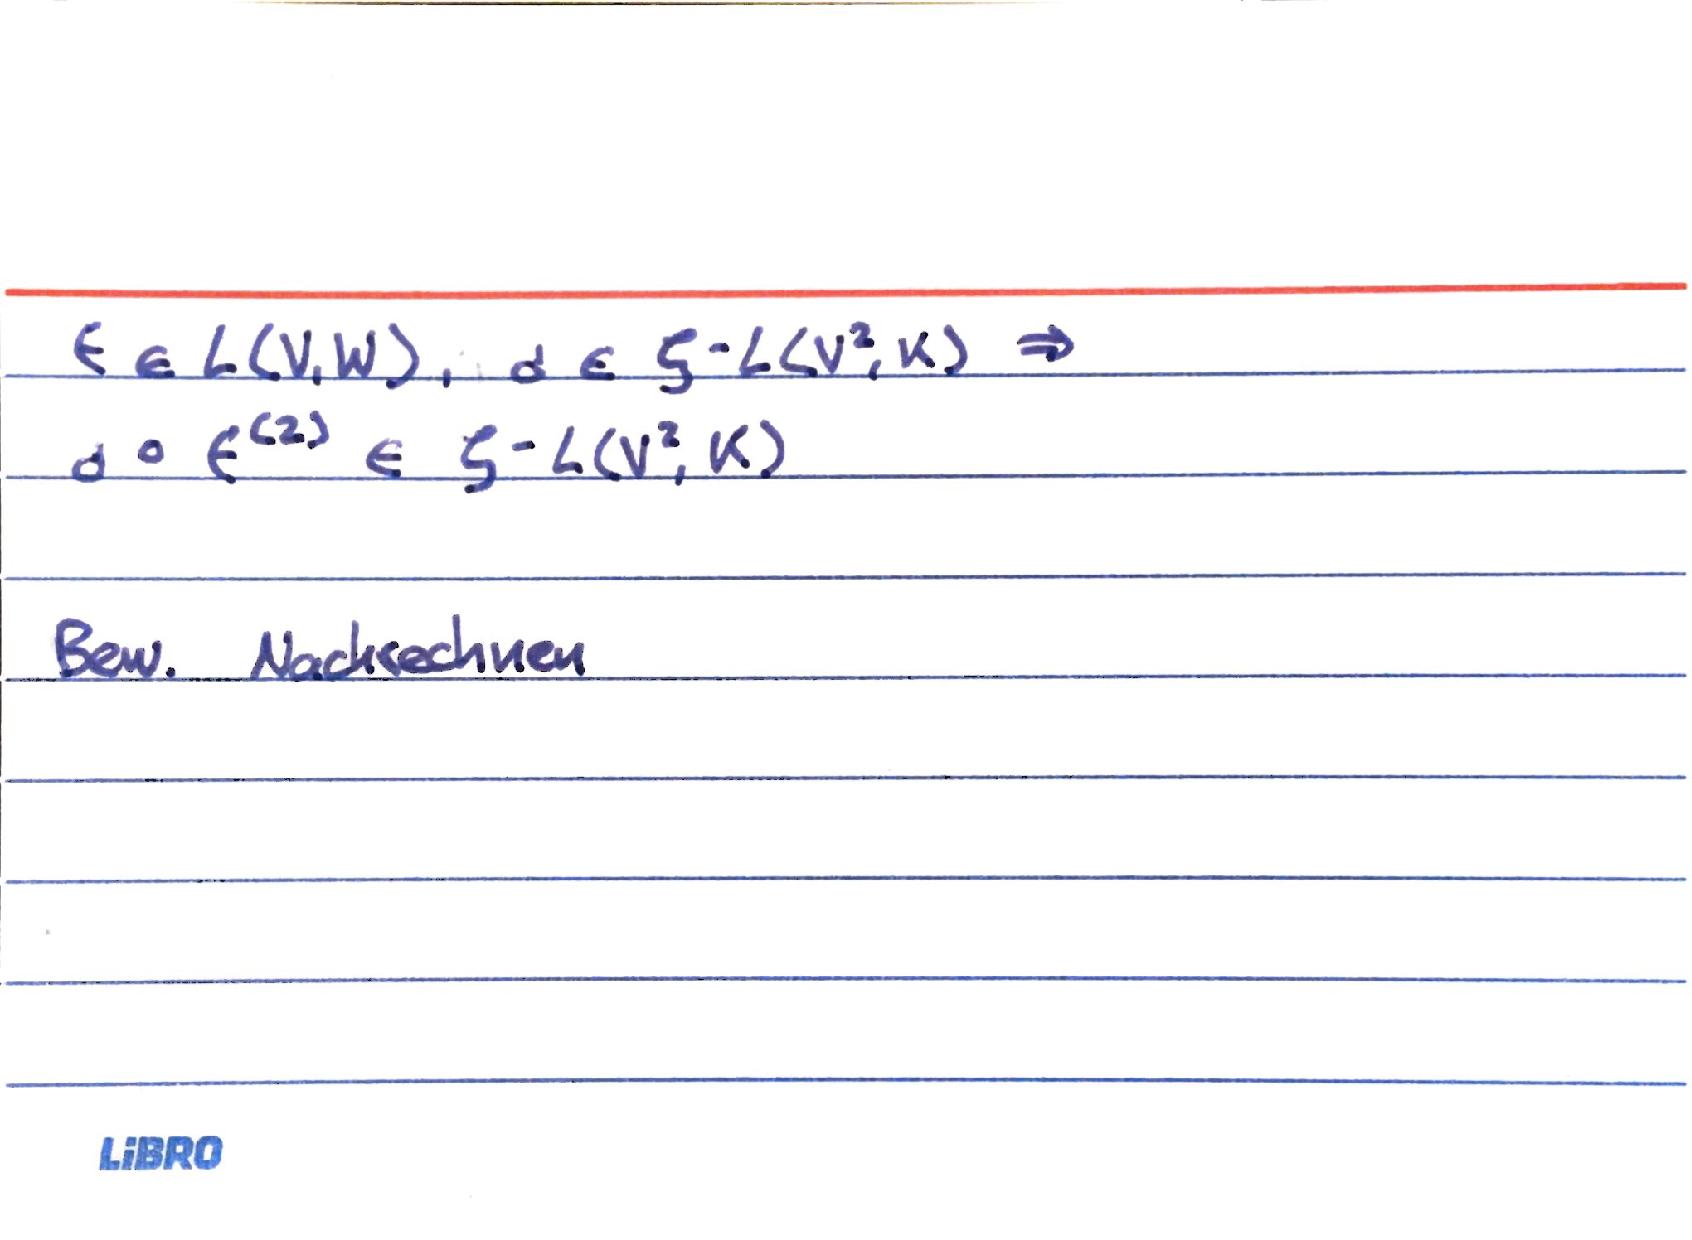 f ∈ L(V,W), σ ∈ ζ-L(V², K) ⇒
σ ∘ f⁽²⁾ ∈ ζ-L(V², K)
Bew. Nachrechnen
LiBRO